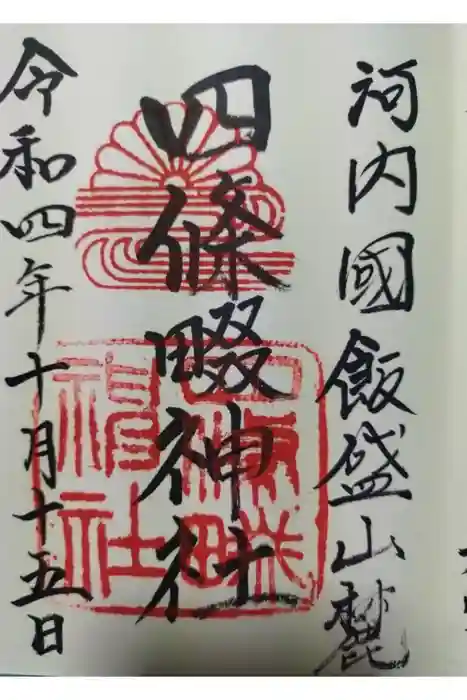 河内國飯盛山麓
四條畷神社
令和四年十月十五日
四條畷
神社